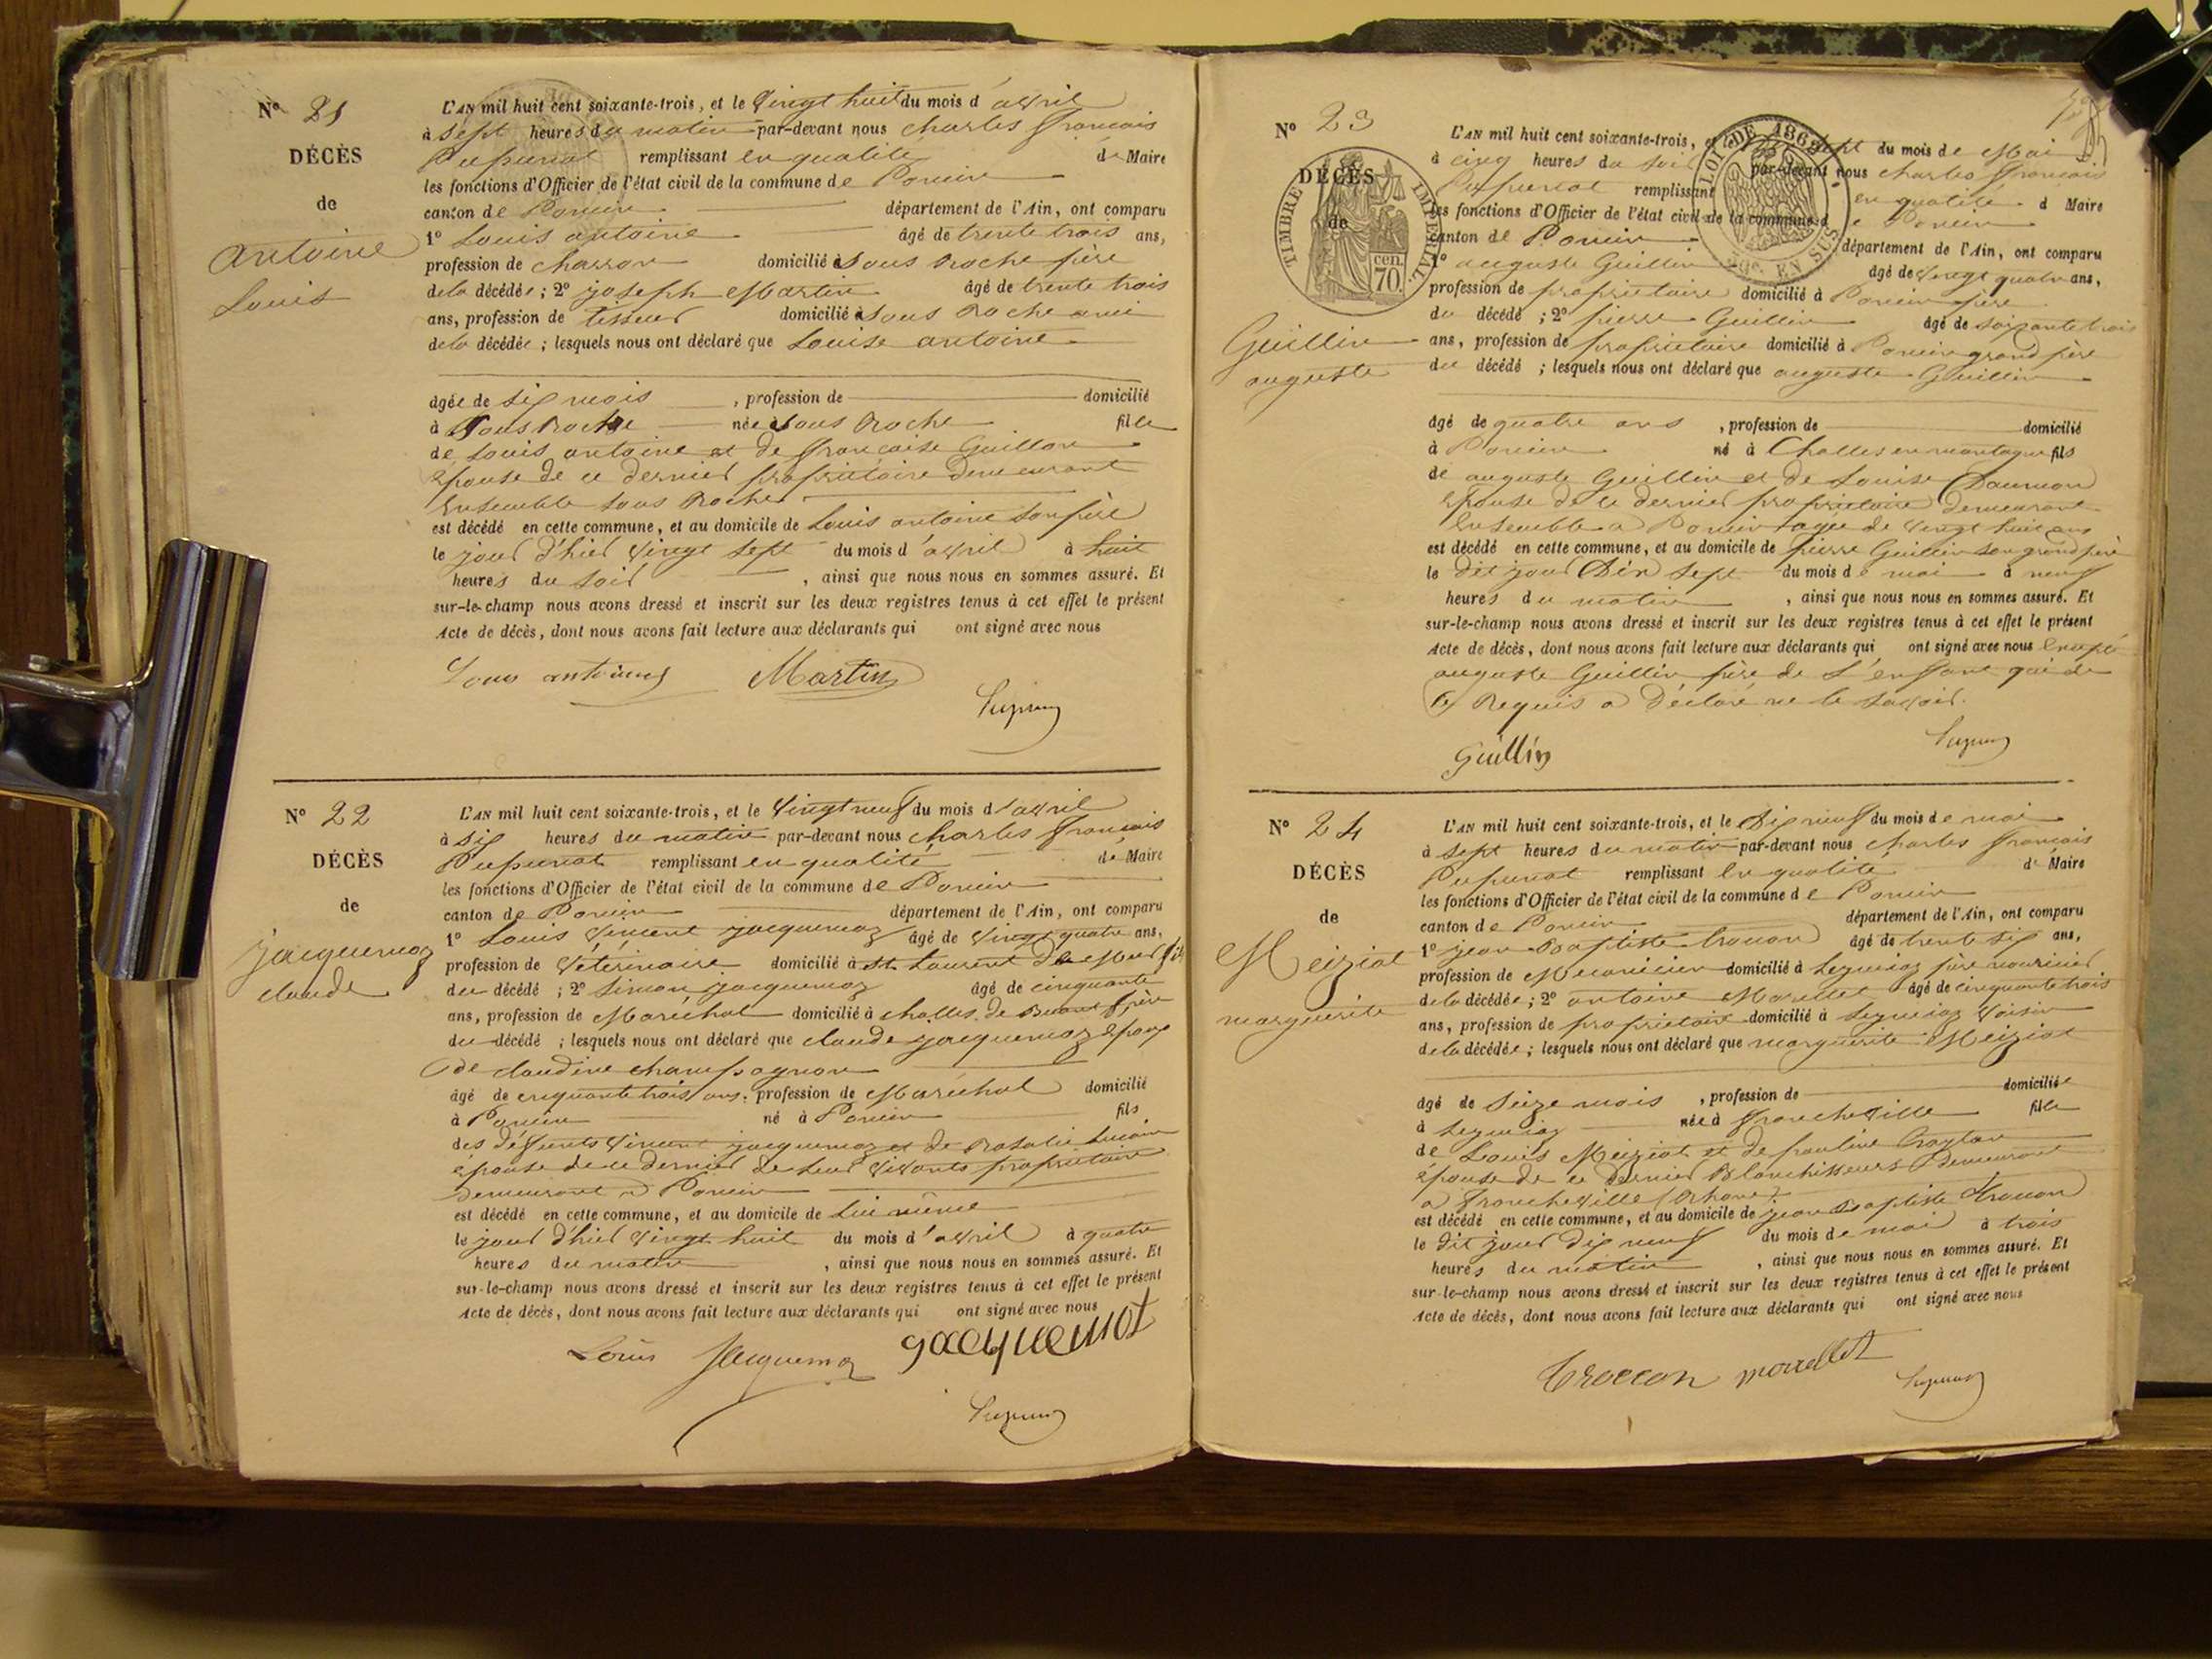 N° 21
DÉCÈS
de
Antoine
Louis
L'AN mil huit cent soixante-trois, et le vingt huit du mois d'avril
à sept heures du matin par-devant nous Charles François
Pupunat remplissant en qualité de Maire
les fonctions d'Officier de l'état civil de la commune de Poncin
canton de Poncin département de l'Ain, ont comparu
1° Louis antoine âgé de trente trois ans,
profession de charron domicilié à Sous Roche père
de la décédée ; 2° joseph Martin âgé de trente trois
ans, profession de tisseur domicilié à Sous Roche ami
de la décédée ; lesquels nous ont déclaré que Louise antoine
âgée de six mois , profession de domicilié
à Sous Roche née à Sous Roche fille
de Louis antoine et de françoise Guillon
épouse de ce dernier propriétaire demeurant
ensemble Sous Roche
est décédé en cette commune, et au domicile de Louis antoine son père
le jour d'hier vingt sept du mois d'avril à huit
heures du soir , ainsi que nous nous en sommes assuré. Et
sur-le-champ nous avons dressé et inscrit sur les deux registres tenus à cet effet le présent
Acte de décès, dont nous avons fait lecture aux déclarants qui ont signé avec nous
Louis antoine Martin
N° 22
DÉCÈS
de
jacquemoz
claude
L'AN mil huit cent soixante-trois, et le vingt neuf du mois d'avril
à six heures du matin par-devant nous Charles François
Pupunat remplissant en qualité de Maire
les fonctions d'Officier de l'état civil de la commune de Poncin
canton de Poncin département de l'Ain, ont comparu
1° Louis Vincent jacquemoz âgé de vingt quatre ans,
profession de Vétérinaire domicilié à St Laurent de Mure fils
du décédé ; 2° Simon jacquemoz âgé de cinquante
ans, profession de Maréchal domicilié à challes de frère
du décédé ; lesquels nous ont déclaré que claude jacquemoz époux
de claudine champagnon
âgé de cinquante trois ans, profession de Maréchal domicilié
à Poncin né à Poncin fils
des défunts Vincent jacquemoz et de Rosalie
épouse de ce dernier de leur vivants propriétaire
demeurant à Poncin
est décédé en cette commune, et au domicile de lui même
le jour d'hier vingt huit du mois d'avril à quatre
heures du matin , ainsi que nous nous en sommes assuré. Et
sur-le-champ nous avons dressé et inscrit sur les deux registres tenus à cet effet le présent
Acte de décès, dont nous avons fait lecture aux déclarants qui ont signé avec nous
Louis Jacquemoz jacquemot
N° 23
DÉCÈS
de
TIMBRE IMPÉRIAL
70 cen.
LOI DE 1862
EN SUS
Guillin
auguste
L'AN mil huit cent soixante-trois, et le sept du mois de Mai
à cinq heures du soir par-devant nous Charles François
Pupunat remplissant en qualité d Maire
les fonctions d'Officier de l'état civil de la commune de Poncin
canton de Poncin département de l'Ain, ont comparu
1° auguste Guillin âgé de vingt quatre ans,
profession de propriétaire domicilié à Poncin père
du décédé ; 2° pierre Guillin âgé de soixante trois
ans, profession de propriétaire domicilié à Poncin grand père
du décédé ; lesquels nous ont déclaré que auguste Guillin
âgé de quatre ans , profession de domicilié
à Poncin né à Challes en montagne fils
de auguste Guillin et de Louise
épouse de ce dernier propriétaire demeurant
ensemble à Poncin agée de vingt huit ans
est décédé en cette commune, et au domicile de pierre Guillin son grand père
le dit jour Dix sept du mois de mai à neuf
heures du matin , ainsi que nous nous en sommes assuré. Et
sur-le-champ nous avons dressé et inscrit sur les deux registres tenus à cet effet le présent
Acte de décès, dont nous avons fait lecture aux déclarants qui ont signé avec nous excepté
auguste Guillin père de l'enfant qui de
ce Requis a déclaré ne le savoir.
Guillin
N° 24
DÉCÈS
de
Meiziat
marguerite
L'AN mil huit cent soixante-trois, et le Dix neuf du mois de mai
à sept heures du matin par-devant nous Charles François
Pupunat remplissant en qualité de Maire
les fonctions d'Officier de l'état civil de la commune de Poncin
canton de Poncin département de l'Ain, ont comparu
1° jean Baptiste trocon âgé de trente six ans,
profession de Mécanicien domicilié à Leymiaz père nourricier
de la décédée ; 2° antoine Morellet âgé de cinquante trois
ans, profession de propriétaire domicilié à Leymiaz voisin
de la décédée ; lesquels nous ont déclaré que marguerite Meiziat
âgé de Seize mois , profession de domiciliée
à Leymiaz née à francheville fille
de Louis Meiziat et de pauline
épouse de ce dernier Blanchisseurs demeurant
a francheville (Rhone)
est décédé en cette commune, et au domicile de jean Baptiste trocon
le dit jour dix neuf du mois de mai à trois
heures du matin , ainsi que nous nous en sommes assuré. Et
sur-le-champ nous avons dressé et inscrit sur les deux registres tenus à cet effet le présent
Acte de décès, dont nous avons fait lecture aux déclarants qui ont signé avec nous
Troccon morellet